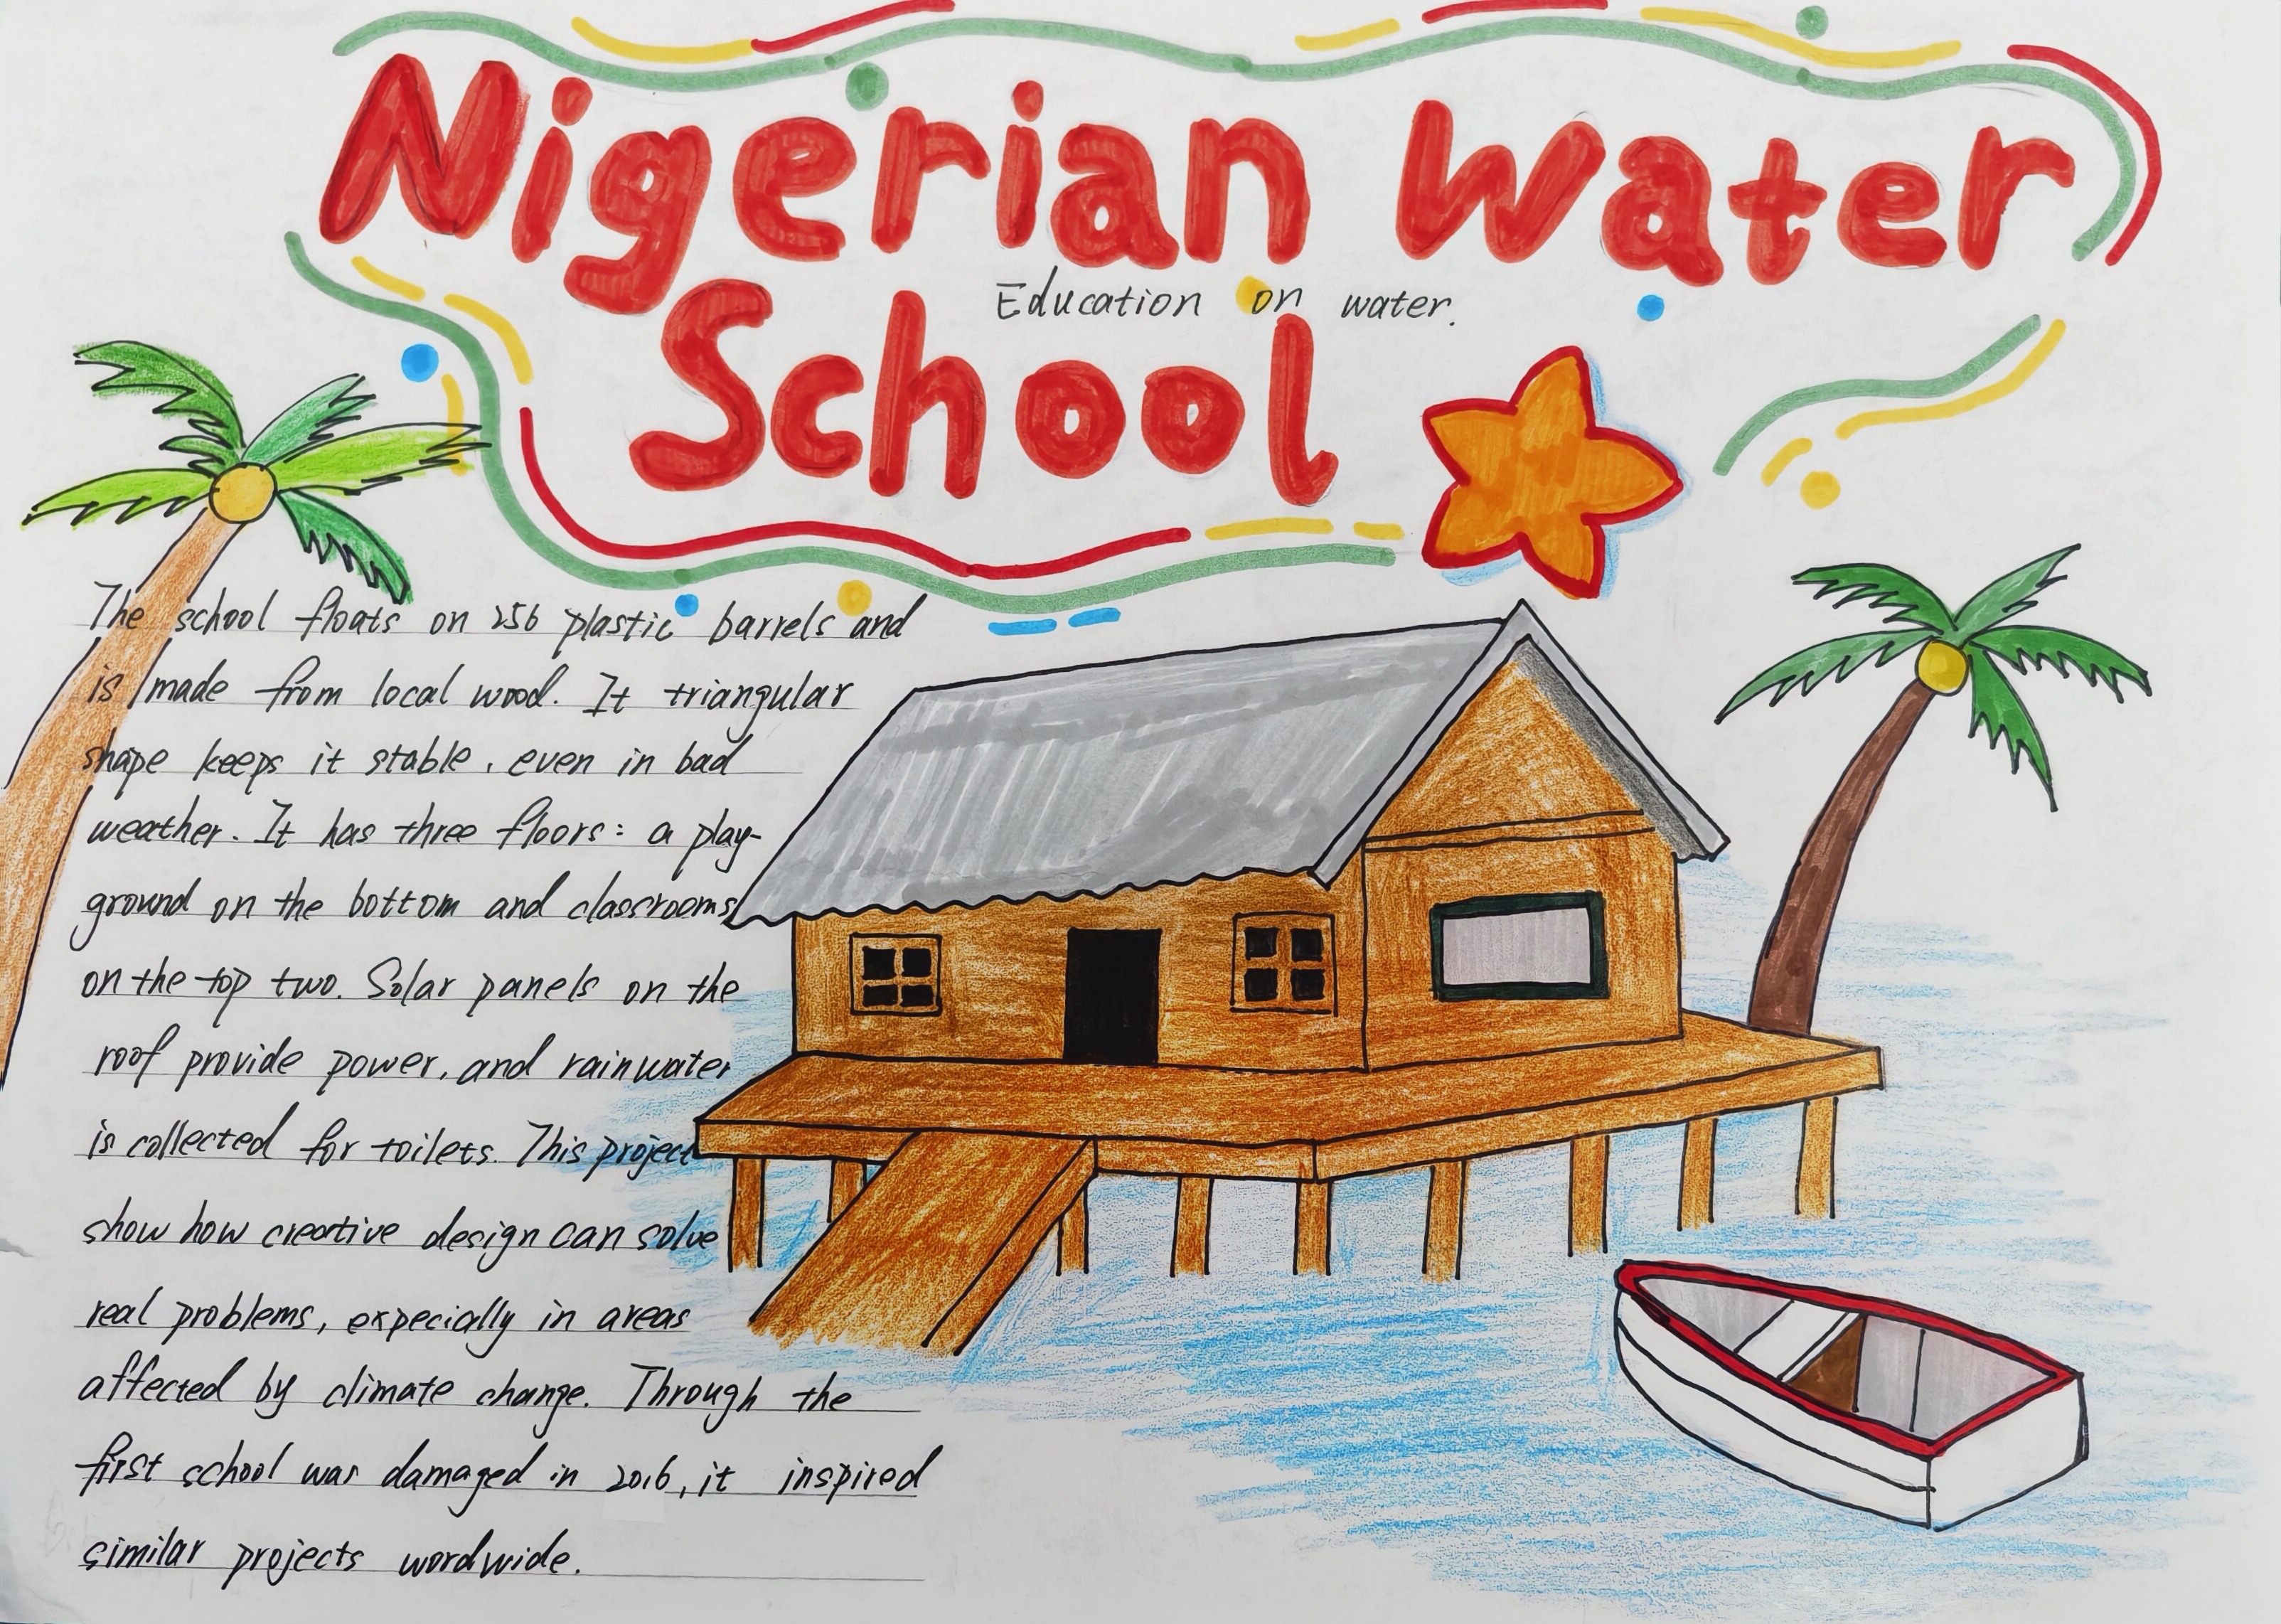 Nigerian Water
Education on water.
School
The school floats on 256 plastic barrels and
is made from local wood. It triangular
shape keeps it stable, even in bad
weather. It has three floors: a play-
ground on the bottom and classrooms
on the top two. Solar panels on the
roof provide power, and rainwater
is collected for toilets. This project
show how creative design can solve
real problems, expecially in areas
affected by climate change. Through the
first school was damaged in 2016, it inspired
similar projects wordwide.